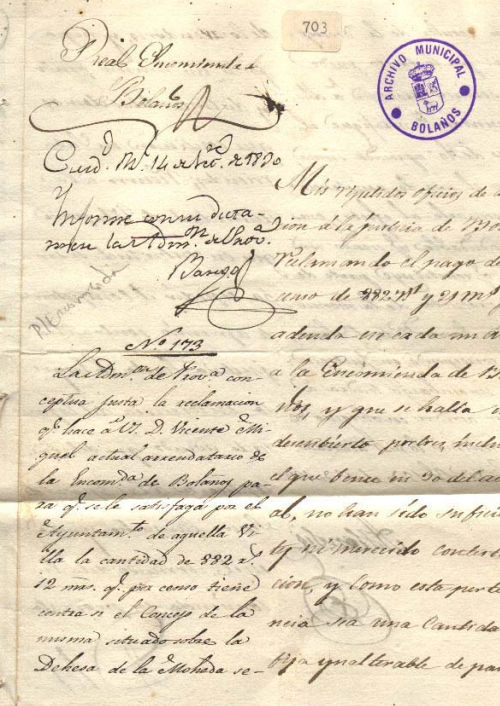 703
ARCHIVO MUNICIPAL
BOLAÑOS
Real Encomienda
Bolaños
14 de de 1830
Informe con su dicta-
men la Adm.on de Prov.a
P/ Encomienda
Nº 173
La Adm.on de Prov.a con-
ceptua justa la reclamacion
q.e hace a V. D. Vicente Mi-
guel actual arrendatario de
la Encom.da de Bolaños pa-
ra q.e se le satisfaga por el
Ayuntam.to de aquella Vi-
lla la cantidad de 882 r.s
12 mrs. q.e por censo tiene
contra si el Concejo de la
misma situado sobre la
Dehesa de la Moheda se-
Mis repetidos oficios de
cion á la justicia de Bo
reclamando el pago de
censo de 882 r.s y 21 m.s
adeuda en cada un a
a la Encomienda de B
ños, y que se halla
descubierto por tres, inclu
el que vence en 30 del ac
al, no han sido sufici
tes ni merecido contest
cion, y como esta perte
nencia sea una cantida
fija ynalterable de pa